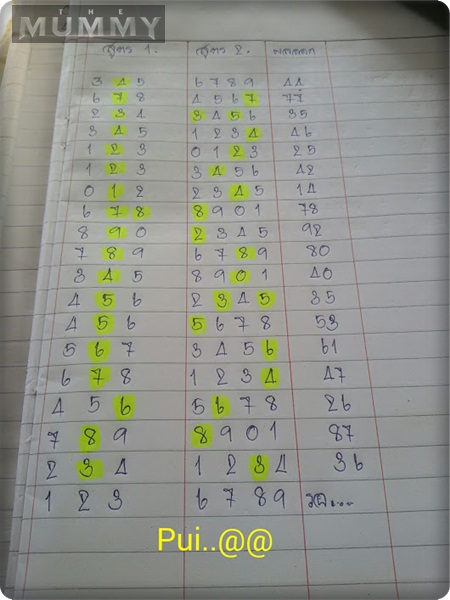 THE
MUMMY
สูตร 1. สูตร 2. ผลออก
3 4 5 6 7 8 9 44
6 7 8 4 5 6 7 77
2 3 4 3 4 5 6 35
3 4 5 1 2 3 4 46
1 2 3 0 1 2 3 25
1 2 3 3 4 5 6 42
0 1 2 2 3 4 5 14
6 7 8 8 9 0 1 78
8 9 0 2 3 4 5 92
7 8 9 6 7 8 9 80
3 4 5 8 9 0 1 40
4 5 6 2 3 4 5 35
4 5 6 5 6 7 8 53
5 6 7 3 4 5 6 61
6 7 8 1 2 3 4 47
4 5 6 5 6 7 8 26
7 8 9 8 9 0 1 87
2 3 4 1 2 3 4 36
1 2 3 6 7 8 9
Pui..@@